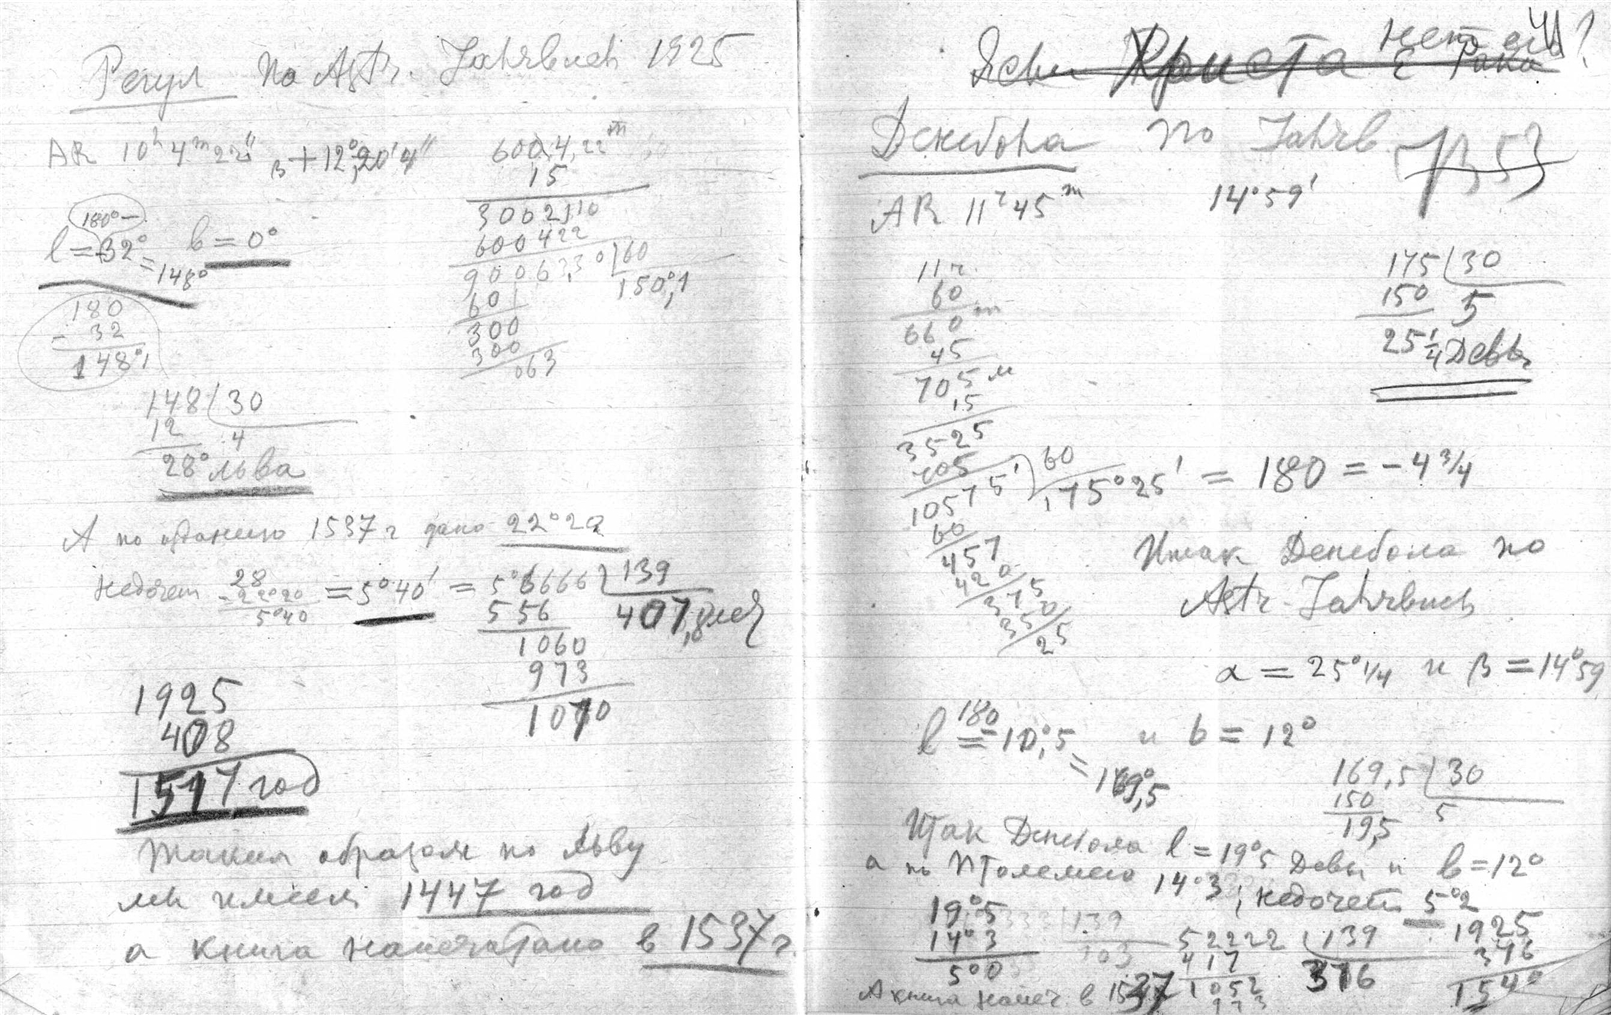 Регул по Astr. Jahrbuch 1925
AR 10h 4m 22" β + 12°,20'4"
6004,22m
15
3002110
600422
90063,30 | 60
60 150°,1
300
300
063
180°−
l = 32° = 148° b = 0°
180
- 32
148°
148 | 30
12 4
28° Льва
А по изданию 1537 г дано 22°20
Недочет 28 - 22°20 5°40 = 5°40' = 5°6666 | 139
556 407,8 лет
1060
973
1070
1925
408
1517 год
Таким образом по Льву
мы имеем 1447 год
а книга напечатана в 1537 г.
Если Христа нет
Денебола по Jahrb.
β 53
AR 11h 45m 14°59'
11 г.
60
660 m
45
705 м
15
3525
705
10575' | 60
60 175°25' = 180 = −4 3/4
457
420
375
350
25
175 | 30
150 5
25 1/4 Девы
Итак Денебола по
Astr. Jahrbuch
α = 25° 1/4 и β = 14°59
l = 180 − 10°,5 = 169°,5 и b = 12°
169,5 | 30
150 5
19,5
Итак Денебола l = 19°5 Девы и b = 12°
а по Птолемею 14°3, недочет 5°2
19°5
14°3
5°0
52222 | 139
417 376
1052
973
1925
376
1540
А книга напеч в 1537